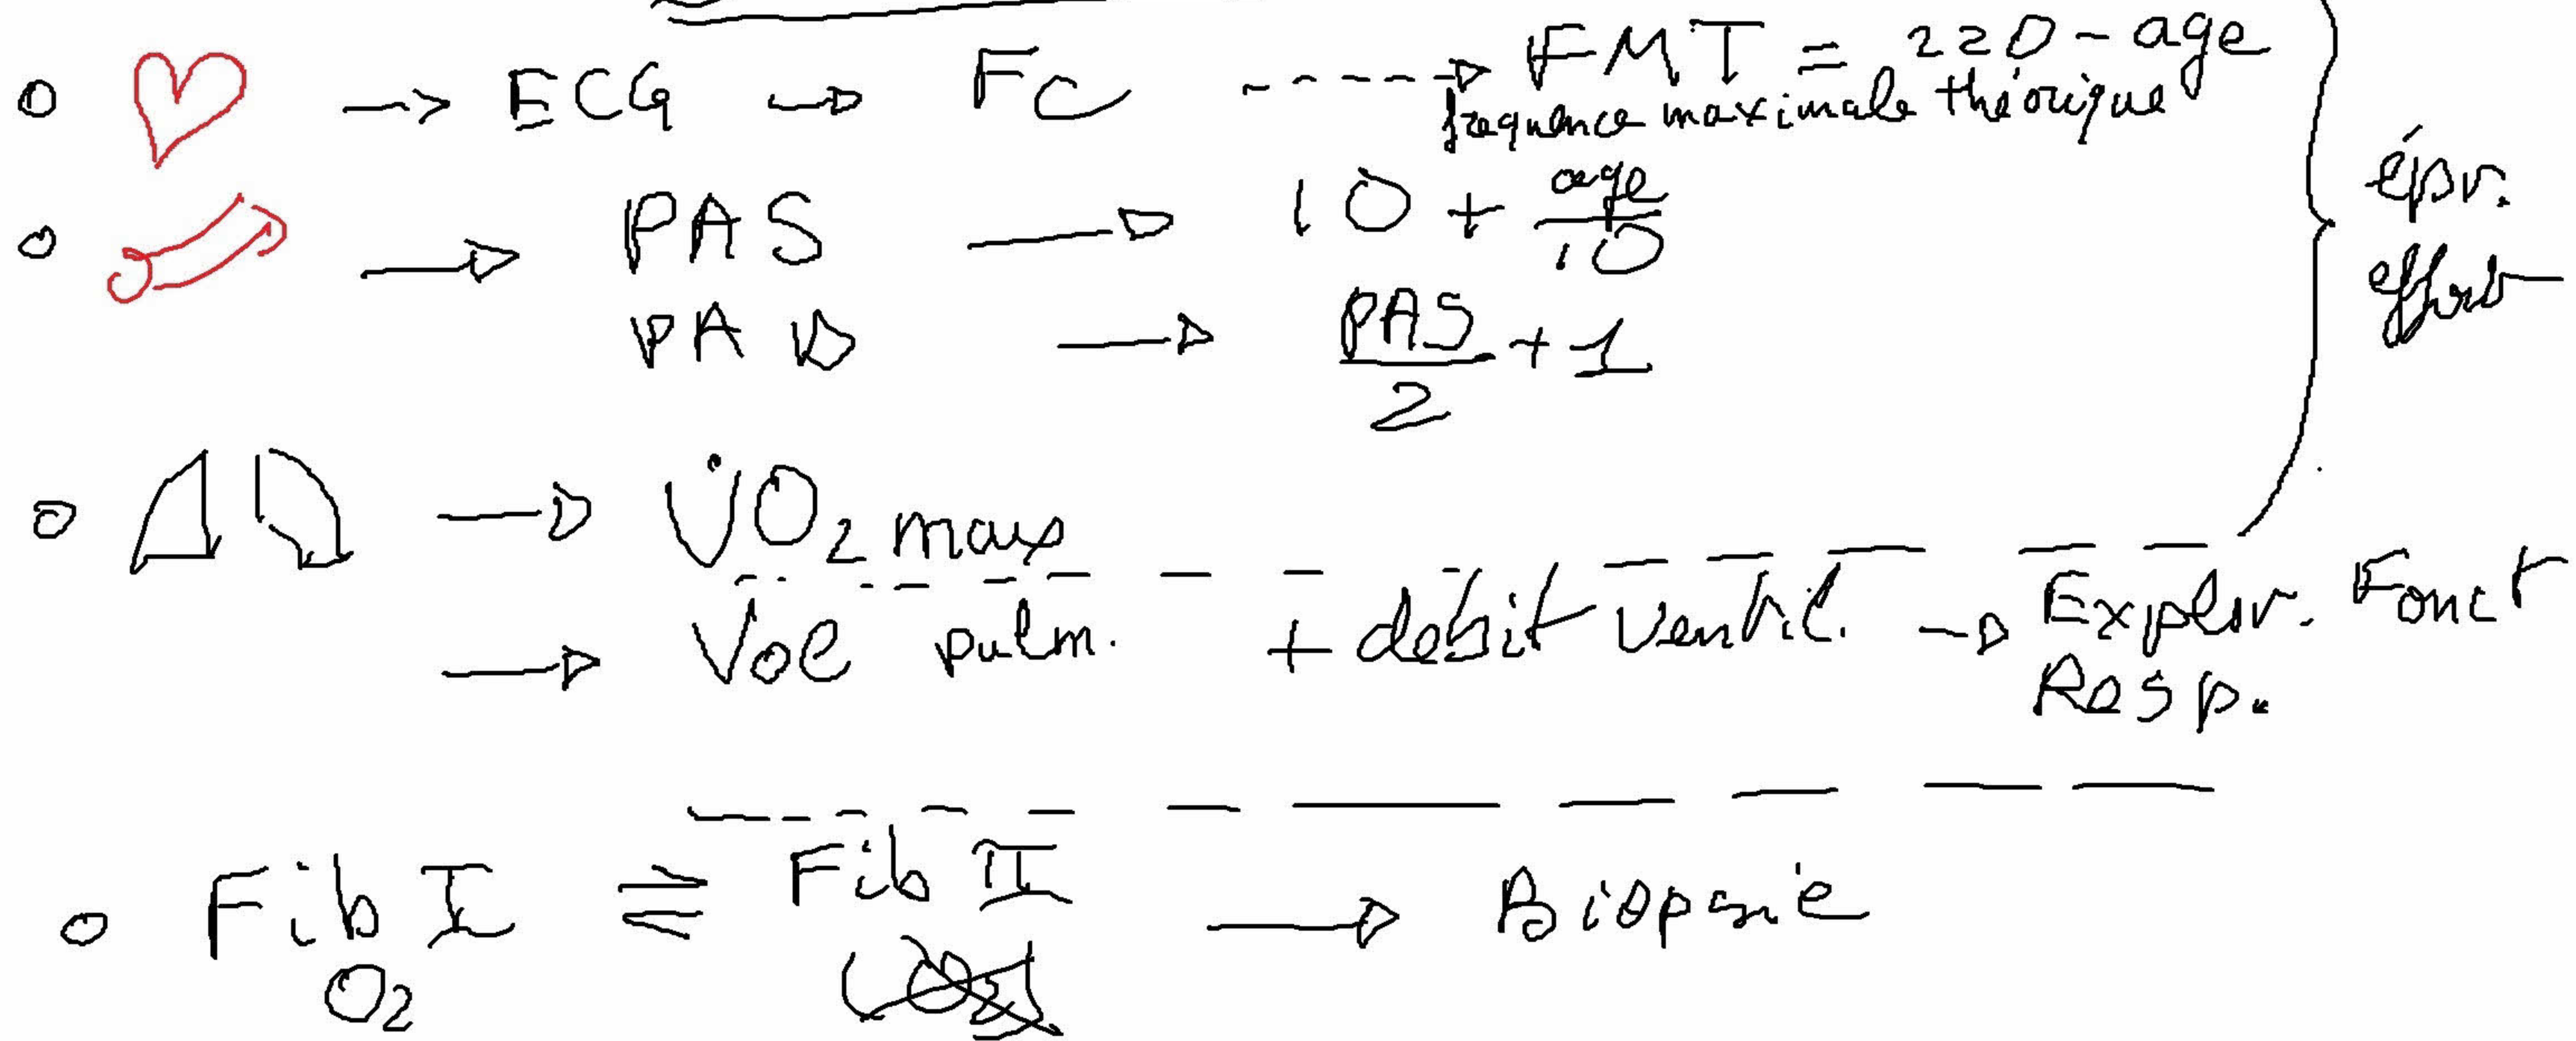 ECG → Fc ----→ FMT = 220 - age
frequence maximale théorique
PAS → 10 + age/10
PAD → PAS/2 + 1
épr. effort
V̇O₂ max
Vol pulm. + debit Ventil. → Explor. Fonct Resp.
Fib I ⇌ Fib II → Biopsie
O₂